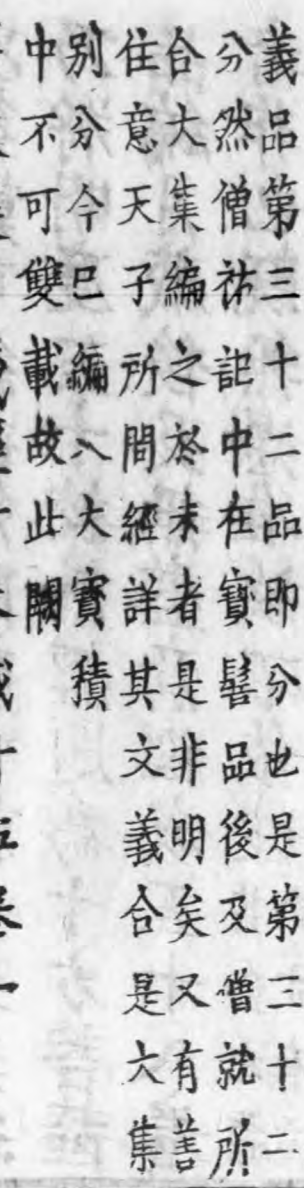 義品第三十二品即分也是第三十二
分然僧祐記中在寶髻品後及僧就所
合大集編之於末者是非明矣又有善
住意天子所問經詳其文義合是大集
別分今已編入大寶積
中不可雙載故此闕